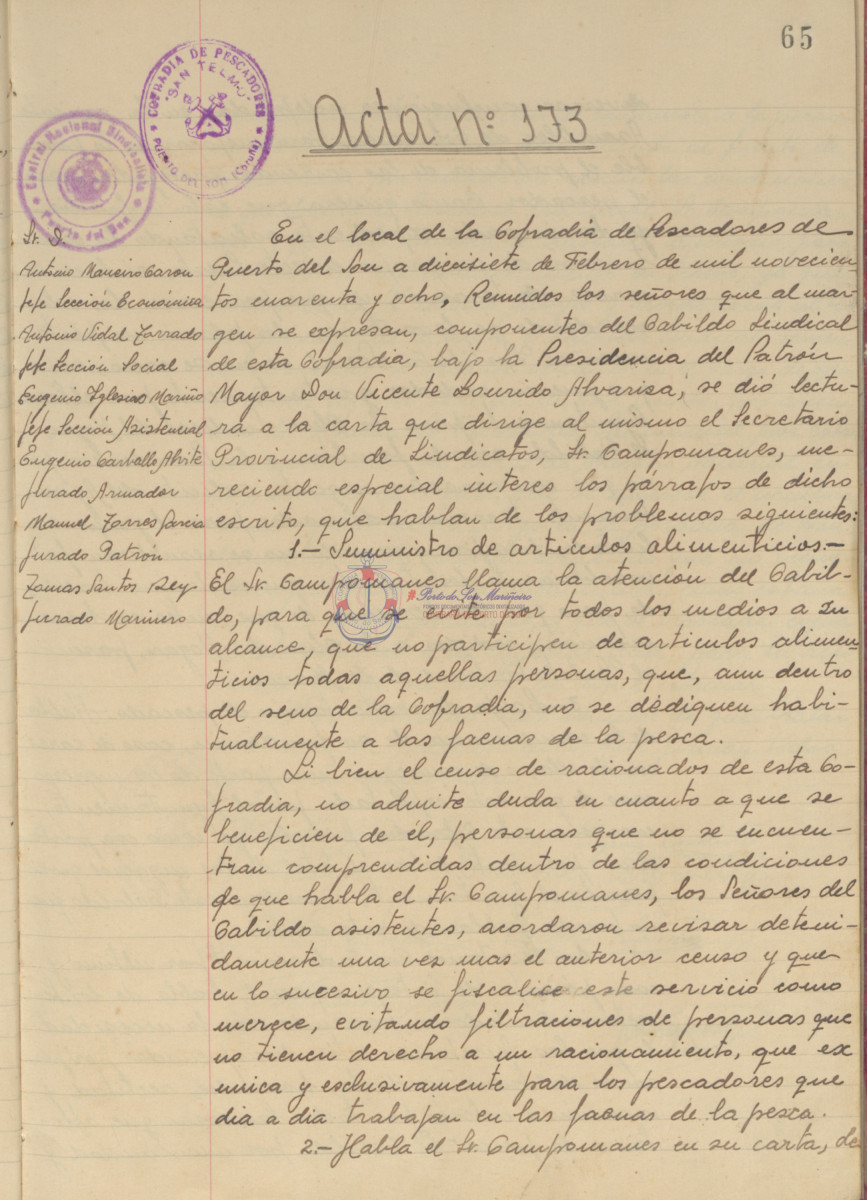 65
COFRADIA DE PESCADORES
"SAN TELMO"
PUERTO DEL SON (Coruña)
Central Nacional Sindicalista
Puerto del Son
Acta nº 173
Sr. D.
Antonio Maneiro Caron
Jefe Sección Económica
Antonio Vidal Torrado
Jefe Sección Social
Eugenio Yglesias Mariño
Jefe Sección Asistencial
Eugenio Carballo Alvite
Jurado Armador
Manuel Torres Garcia
Jurado Patrón
Tomas Santos Rey
Jurado Marinero
En el local de la Cofradia de Pescadores de
Puerto del Son a diecisiete de Febrero de mil novecien-
tos cuarenta y ocho, Reunidos los señores que al mar-
gen se expresan, componentes del Cabildo Sindical
de esta Cofradia, bajo la Presidencia del Patrón
Mayor Don Vicente Lourido Alvariza, se dió lectu-
ra a la carta que dirige al mismo el Secretario
Provincial de Sindicatos, Sr. Campomanes, me-
reciendo especial interes los párrafos de dicho
escrito, que hablan de los problemas siguientes:
1.- Suministro de articulos alimenticios.-
El Sr. Campomanes llama la atención del Cabil-
do, para que se evite por todos los medios a su
alcance, que no participen de articulos alimen-
ticios todas aquellas personas, que, aun dentro
del seno de la Cofradia, no se dediquen habi-
tualmente a las faenas de la pesca.
Si bien el censo de racionados de esta Co-
fradia, no admite duda en cuanto a que se
beneficien de él, personas que no se encuen-
tran comprendidas dentro de las condiciones
de que habla el Sr. Campomanes, los Señores del
Cabildo asistentes, acordaron revisar deteni-
damente una vez mas el anterior censo y que
en lo sucesivo se fiscalice este servicio como
merece, evitando filtraciones de personas que
no tienen derecho a un racionamiento, que es
unica y esclusivamente para los pescadores que
dia a dia trabajan en las faenas de la pesca.
2.- Habla el Sr. Campomanes en su carta, de
Porto do Son Mariñeiro